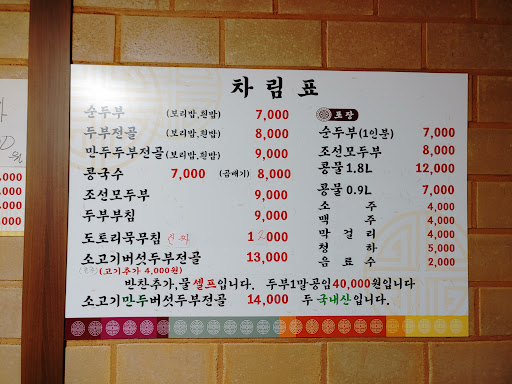 차림표
순두부 (보리밥,흰밥) 7,000
두부전골 (보리밥,흰밥) 8,000
만두두부전골 (보리밥,흰밥) 9,000
콩국수 7,000 (곱배기) 8,000
조선모두부 9,000
두부부침 9,000
도토리묵무침 12000
소고기버섯두부전골 13,000
(고기추가 4,000원)
포장
순두부(1인분) 7,000
조선모두부 8,000
콩물1.8L 12,000
콩물0.9L 7,000
소주 4,000
맥주 4,000
막걸리 4,000
청하 5,000
음료수 2,000
반찬추가,물 셀프입니다. 두부1말공임40,000원입니다
소고기만두버섯두부전골 14,000 두 국내산입니다.